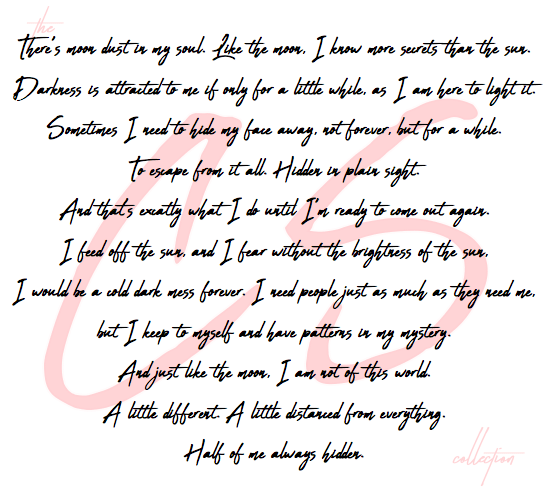 the
There's moon dust in my soul. Like the moon, I know more secrets than the sun.
Darkness is attracted to me if only for a little while, as I am here to light it.
Sometimes I need to hide my face away, not forever, but for a while.
To escape from it all. Hidden in plain sight.
And that's excatly what I do until I'm ready to come out again.
I feed off the sun, and I fear without the brightness of the sun,
I would be a cold dark mess forever. I need people just as much as they need me,
but I keep to myself and have patterns in my mystery.
And just like the moon, I am not of this world.
A little different. A little distanced from everything.
Half of me always hidden.
CS
collection